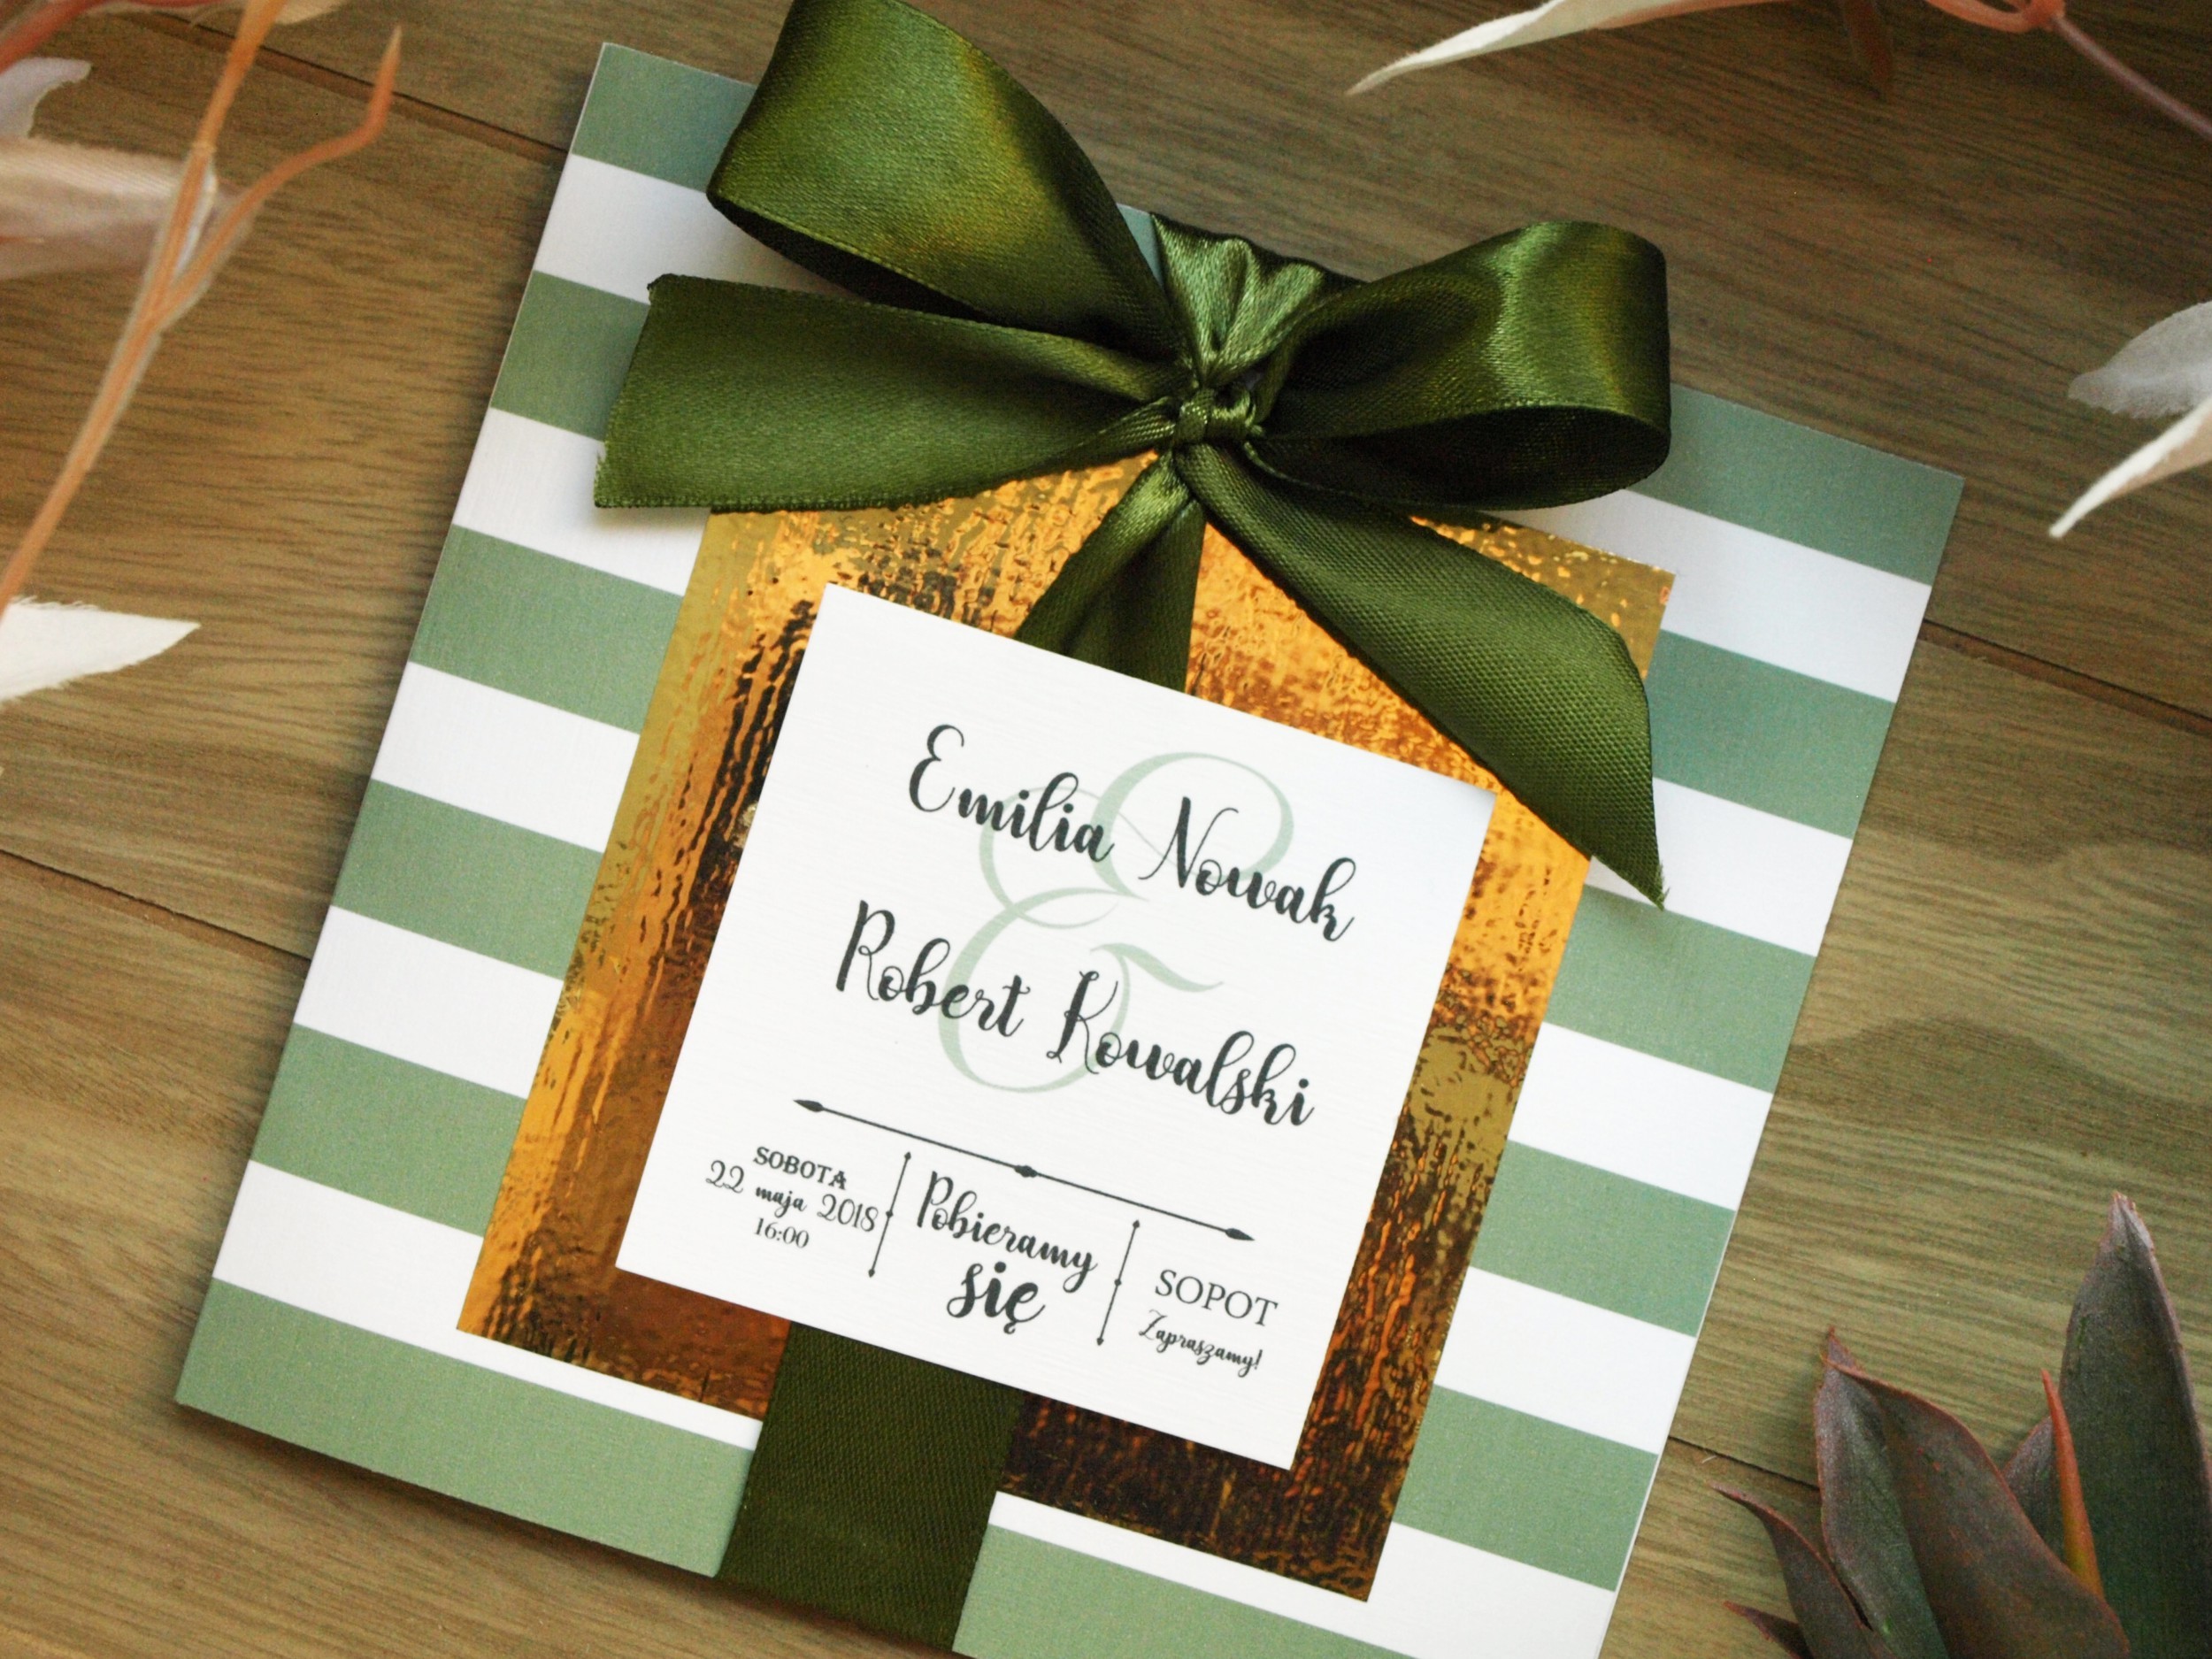 &
Emilia Nowak
Robert Kowalski
SOBOTA
22 maja 2018
16:00
Pobieramy
się
SOPOT
Zapraszamy!